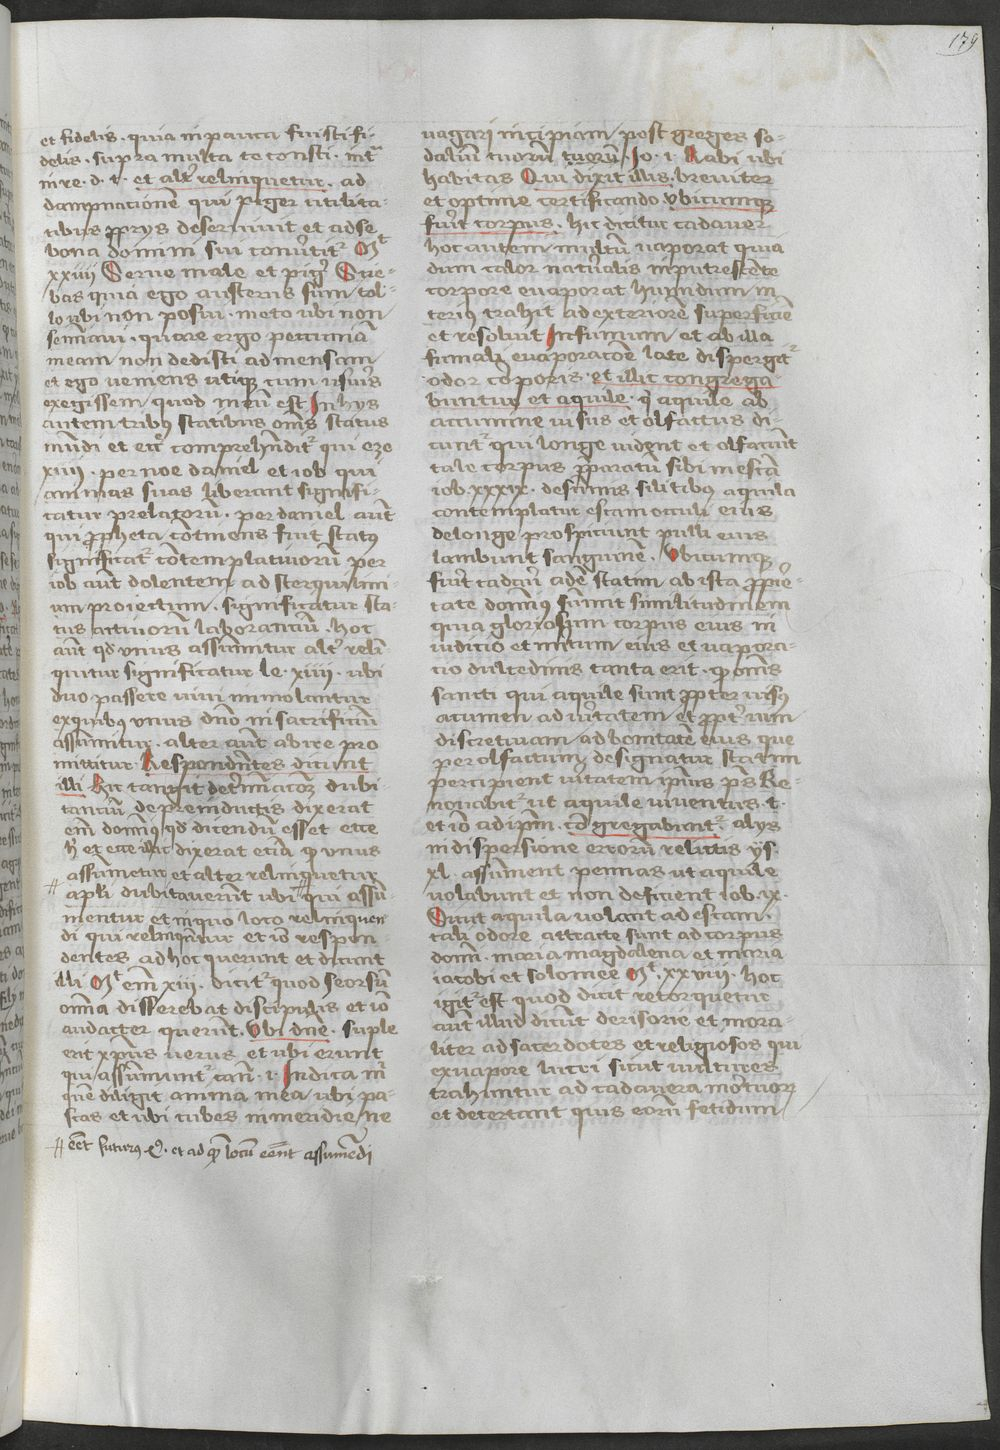 179
et fidelis. quia in pauca fuisti fi-
delis. supra multa te consti. intra
in re. d. t. et alt̄ relinquetur. ad
dampnacionē qui piger utilita-
tibus ꝓprijs deseruiuit et ad se
bona domini sui conu̓tit᷑ Mͭ
xxiiii Serue male et pig̓ Scie-
bas quia ego austerus sum̄ tol-
lo ubi non posui. meto ubi non
seminaui. quare ergo peccuniā
meam non dedisti ad mensam
et ego ueniens utiqꝫ cum usur̓s
exegissem quod meū est In hys
autem tribus statibus om̄s status
mūdi et ecc̄ comprehēdit᷑ qui eze
xiiij. per noe daniel et iob qui
animas suas liberant signifi-
catur prelatorū. per daniel aut̄
qui ꝓpheta cōtinens fuit status
significat᷑ cōtemplatiuorū per
iob aut̄ dolentem ad sterquilini-
um proiectum. significatur sta-
tus actiuorū laborancium. hoc
aut̄ qd̓ unus assumitur alt̓ reli-
quitur significatur le. xiiii. ubi
duo passere uiui immolantur
ex quibus unus dn̄o in sacrificiū
assumitur. alter aut̄ abire pro
mittitur. Respondentes dicunt
illi Hic tangit det̓minacōꝫ dubi-
tanciū de preinductis dixerat
em̄ domin̓ qd̓ dicendū esset ecce
h̓ et ecce illic dixerat eciā ꝙ unus
assumetur et alter relinquetur
ap̄li dubitauerūt ubi qui assu-
mentur et in quo loco relinquen
di qui relinqūtur et iō respon-
dentes ad hoc querunt et dicunt
illi Mͭ em̄ xiii. dicit᷑ quod seorsū
omnia disserebat discipulis et iō
audacter querūt. Vbi dn̄e. suple
erit xp̄us uerus et ubi erunt
qui assumunt᷑ can̄. i. Indica m̓
quē diligit anima mea ubi pa-
scas et ubi cubes in meridie ne
eēt futurus et ad quē locū eēnt assumēdi
uagari incipiam post greges so-
daliū tuorū tuorū. Jo. i. Rabi ubi
habitas Qui dixit illis breuiter
et optime certificando Vbicumqꝫ
fuit̓ corpus. hic dicitur cadauer
hoc autem multū uaporat quia
dum calor nat̓uralis in putrescēte
corpore euaporat humidum in
terius trahit ad exteriorē superficiē
et resoluit In fumum et ab illa
fumali euaporacōe late dispergit᷑
odor corporis. et illic congrega
buntur et aquile. qꝛ aquile ab
accumine uisus et olfactus di-
cunt᷑ qui longe uident et olfaciūt
tale corpus ꝓparatū sibi in escā
iob. xxxix. de summis silicibus aquila
contemplatur escam occuli eius
de longe prospiciunt pulli eius
lambunt sanguinē. Vbicumqꝫ
fuit̓ cadau̓ adē statim ab ista ꝓprie-
tate domin̓ sumit similitudinem
quia gloriosum corpus eius in
iudicio et mitum eius et uapora-
cio dulcedinis tanta erit. ꝙ om̄s
sancti qui aquile sunt ꝓpter uisus
acumen ad u̓itatem et ꝓpt̓ uim
discretiuam ad bonitatē eius que
per olfactum designatur statim
percipient u̓itatem ipsius ps Re-
nouabit᷑ ut aquile iuuentus. t.
et iō ad ip̄m. cō gregabunt᷑. alijs
in dispersione errorū relictis ys.
xl. assument pennas ut aquile
uolabunt et non deficient iob. ix.
Sicut aquila uolant ad escam.
tali odore attracte sunt ad corpus
domī. maria magdalena et maria
iacobi et solomee Mͭ xxviii. hoc
igit᷑ est quod dicit retorquetur
aut̄ illud dictū derisorie et mora-
liter ad sacerdotes et religiosos qui
ex uapore lucri sicut uultures
trahuntur ad cadauera mortuoꝝ
et decertant quis eorū fetidum